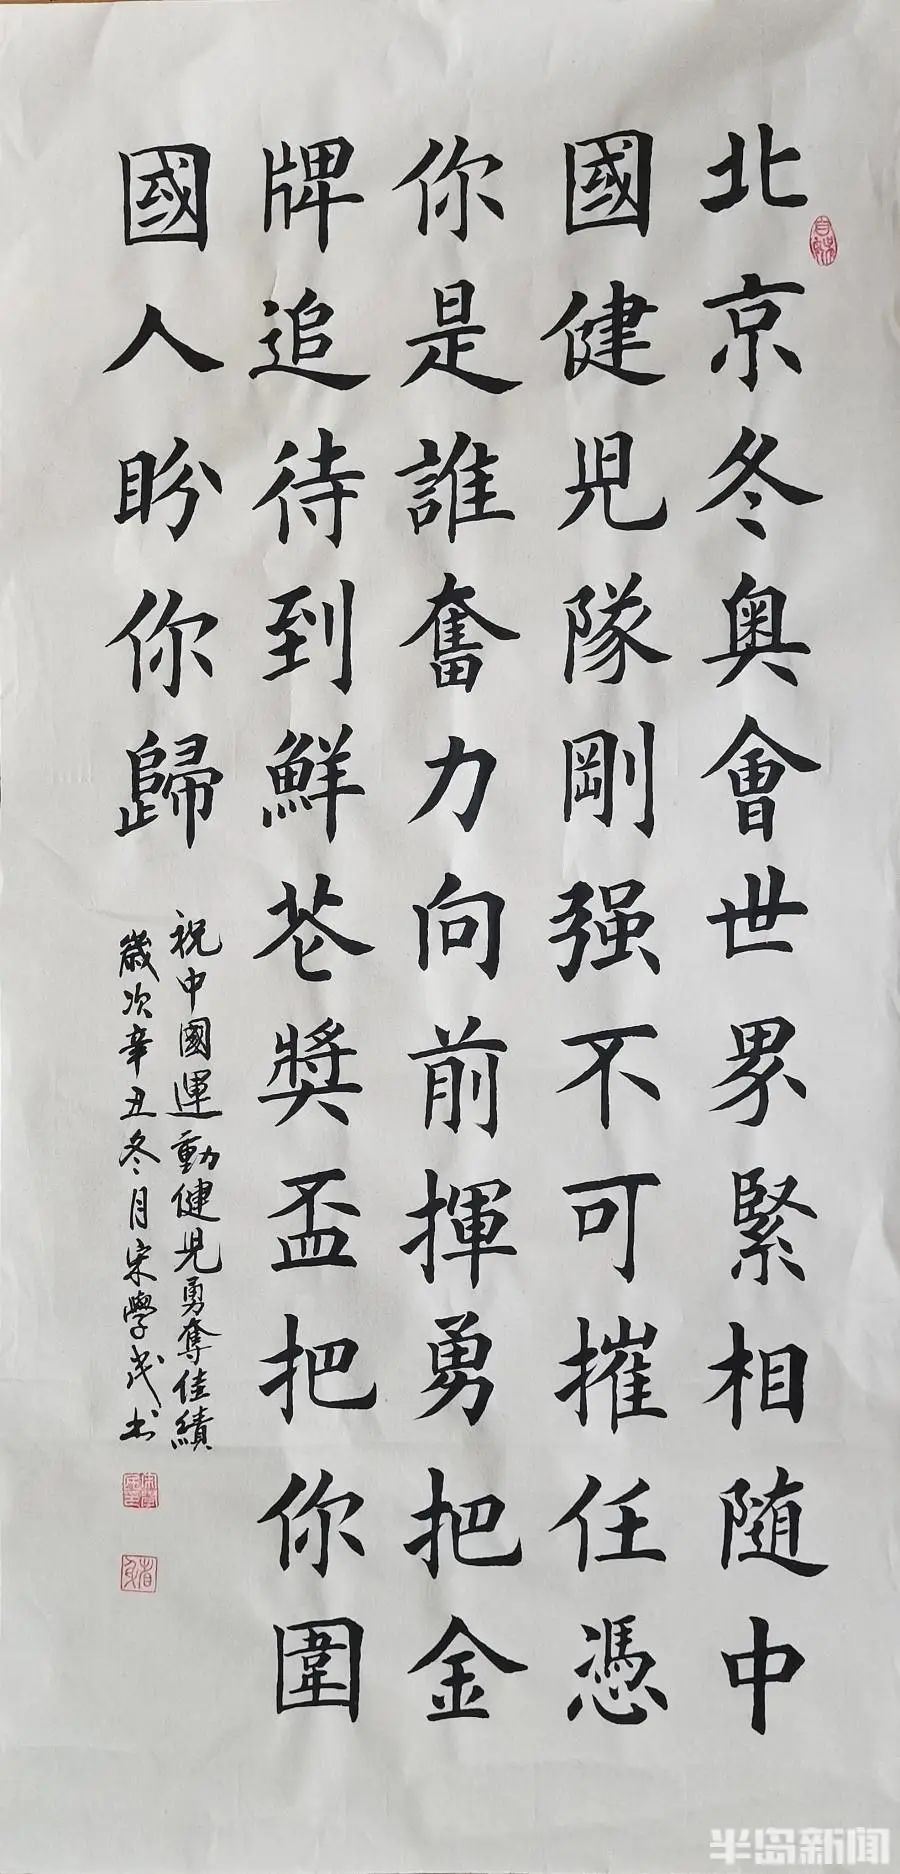 北京冬奥會世界緊相随中
國健兒隊剛强不可摧任憑
你是誰奮力向前揮勇把金
牌追待到鮮花獎盃把你圍
國人盼你歸
祝中國運動健兒勇奪佳績
歲次辛丑冬月宋學茂书
半岛新闻